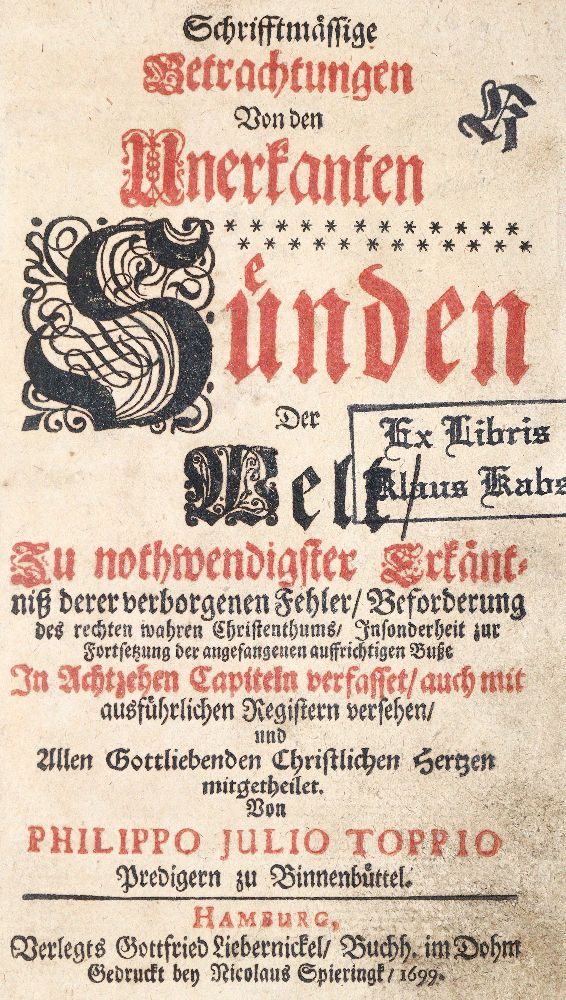 Schrifftmässige
Betrachtungen
Von den
Unerkanten
Sünden
Der
Welt/
Ex Libris
Klaus Kabs
Zu nothwendigster Erkänt-
niß derer verborgenen Fehler/ Beforderung
des rechten wahren Christenthums/ Insonderheit zur
Fortsetzung der angefangenen auffrichtigen Buße
In Achtzehen Capiteln verfasset/ auch mit
ausführlichen Registern versehen/
und
Allen Gottliebenden Christlichen Hertzen
mitgetheilet.
Von
PHILIPPO JULIO TOPPIO
Predigern zu Binnenbüttel.
HAMBURG,
Verlegts Gottfried Liebernickel/ Buchh. im Dohm
Gedruckt bey Nicolaus Spieringk/ 1699.